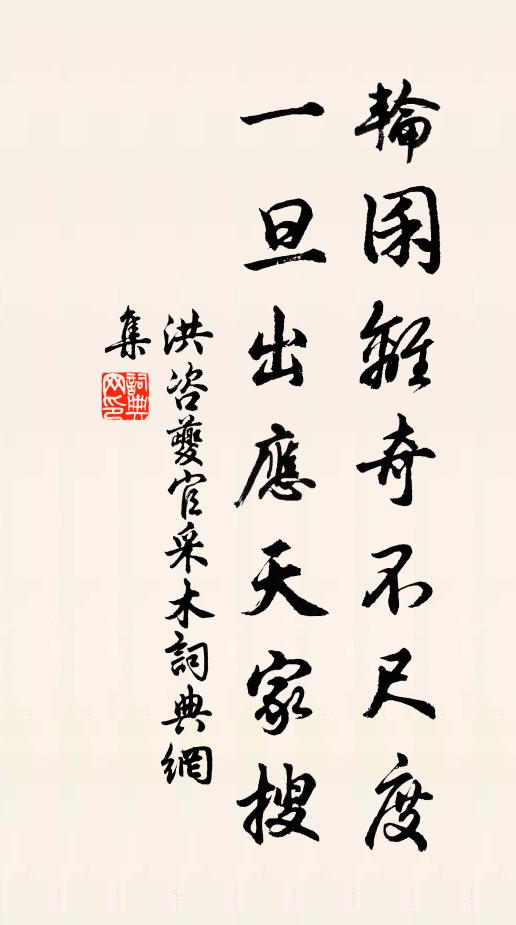 輪囷離奇不尺度
一旦出應天家搜
洪咨夔官采木詞典網
集
詞典
网印